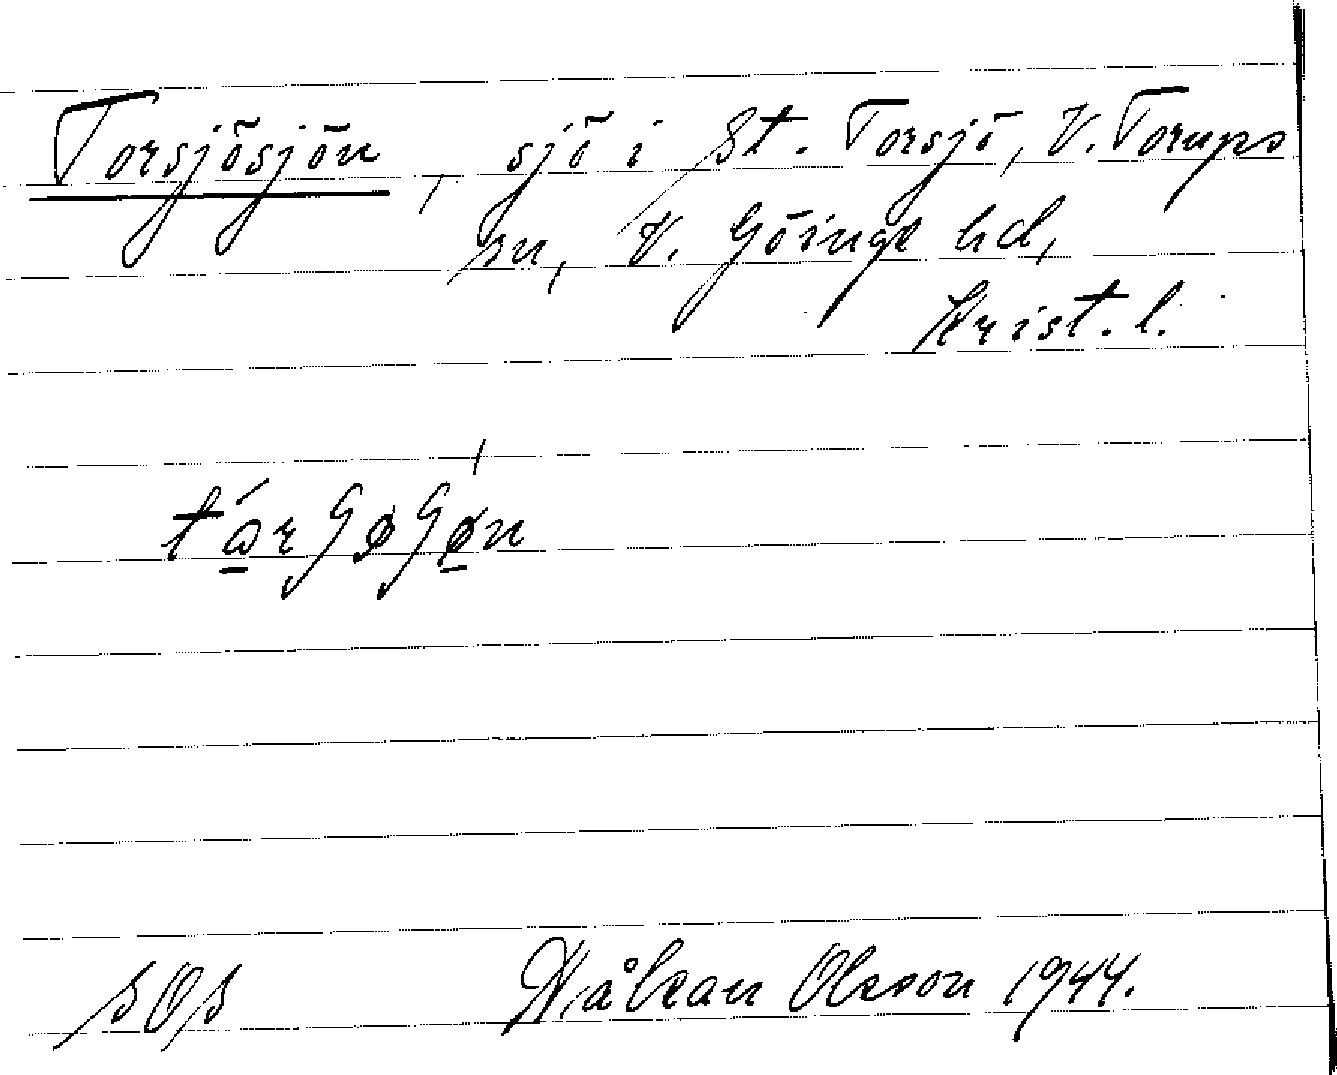 Torsjösjön, sjö i St. Torsjö, V. Torups
sn, V. Göinge hd,
Krist. l.
SOS Håkan Olsson 1944.